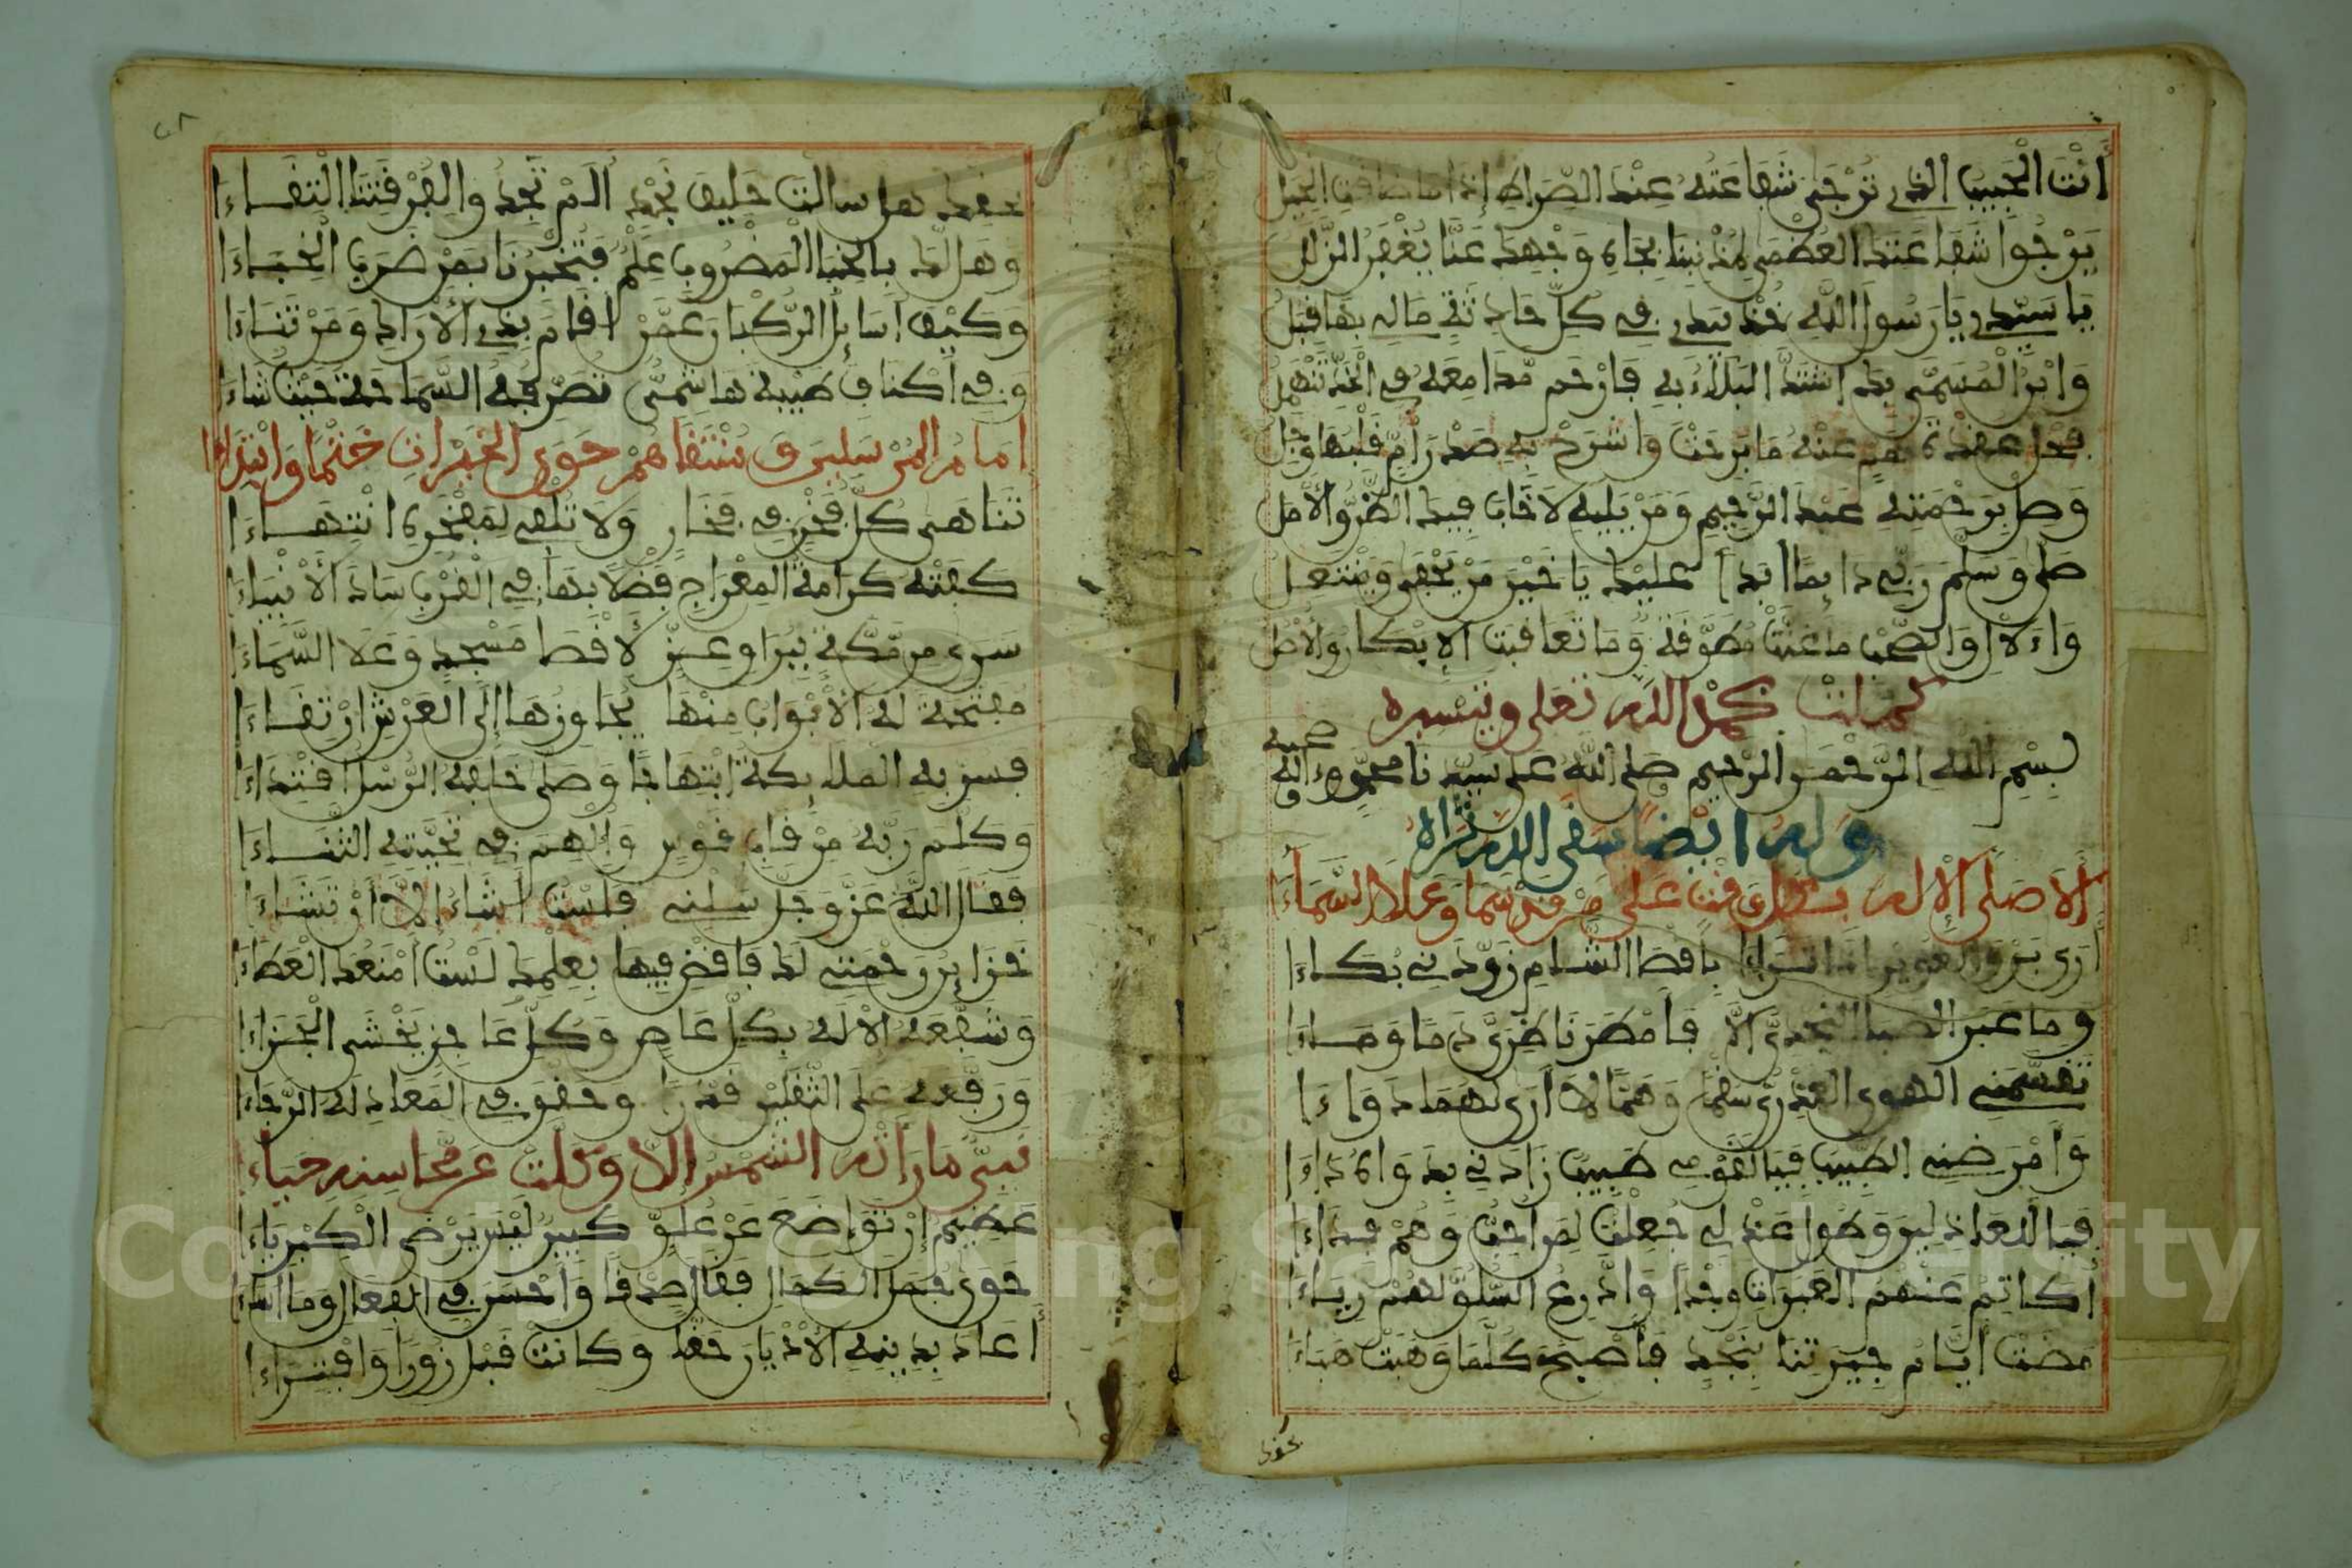 أَنْتَ الْحَبِيبُ الذي تُرْجَى شَفَاعَتُهُ عِنْدَ الصِّرَاطِ إذا ما ضاقت الحيل
يَرْجُوا شَفَاعَتَكَ العُظْمَى مُذْنِبُنَا بِجَاهِ وَجْهِكَ عَنَّا يُغْفَرُ الزَّلَلُ
يَا سَيِّدِي يَا رَسُولَ اللهِ خُذْ بيدي في كلِّ حادثةٍ مالي بها قبل
وَابْنُ الْمُسَمَّى بِكَ اشْتَدَّ البَلَاءُ بِهِ فَارْحَمْ مَدَامِعَهُ في الخدّ تنهمل
فحل عقدة هم عنه ما برحت واشرح به صدر أم قلبها وجل
وَصِلْ بِرَحْمَتِهِ عَبْدَ الرَّحِيمِ وَمَنْ يَلِيهِ لَا خَابَ فيك الظن والأمل
صَلَّى وَسَلَّمَ رَبِّي دَائِمًا أَبَدًا عليك يا خَيْرَ مَنْ يَحْفَى وَيَنْتَعِل
وَالآلِ وَالصَّحْبِ مَا غَنَّتْ مُطَوَّقَةٌ وَمَا تَعَاقَبَتِ الإِبْكَارُ وَالأُصُل
كملت بحمد الله تعلى وتيسيره
بِسْمِ اللهِ الرَّحْمَنِ الرَّحِيمِ صَلَّى اللهُ على سيدنا محمد وءاله وصحبه
وله أيضا سقى الله ثراه
ألا صَلَّى الإله بكل وقت على من قد سما وعلا السماءَ
أرى برق الغوير إذا تراءا بأقصا الشام زوّدني بكاءَا
وما عبر الصبا النجديّ إلّا فأمطر ناظريّ دمًا وماءَا
تقسّمني الهوى العذريّ سقمًا وهمًّا لا أرى لهما دواءَا
وأمرضني الطبيب فيا لقومي طبيب زادني بدواه داءَا
فيا للعاذلين وطول عذلي جعلت لمن أحب وهم فداءَا
أكاتم عنهم العبرات وجدًا وأدّرع السلوّ لهم رياءَا
مضت أيام جيرتنا بنجد فأصبح كلما وهبت هباءَا
فقد
٢٨
فقد هل سالت خليف نجد ألم تجد والقفر فتنتنا التقاءَا
وهل لك بالخبا المضروب علم فتخبرنا بمن ضرب الخباءَا
وكيف أسايل الركبان عمن أقام بذي الأراك ومن تناءَا
وفي أكناف طيبة هاشمى تصرفه السماحة حيث شاءَا
إمام المرسلين ومنتقاهم حوى الخيرات ختمًا وابتداءَا
تناهى كلّ فخر في فخار ولا تلقى لمفخره انتهاءَا
كفته كرامة المعراج فضلًا بها في القرب ساد الأنبياءَ
سرى من مكة ببراق عز لأقصا مسجد وعلا السماءَ
مفتحة له الأبواب منها يجاوزها إلى العرش ارتقاءَا
فسر به الملايكة ابتهاجًا وصلى خلفه الرسل اقتداءَا
وكلم ربه من قاب قوس وألهم في تحيته الثناءَا
فقال الله عزوجل سلني فلست أشاء إلا أن تشاءَ
خزاين رحمتي لك فاقض فيها بحكمك لست أمنعك العطاءَ
وشفعه الإله بكل عاص وكل عاجز يخشى الجزاءَ
ورفعه على الثقلين قدرا وحقق في المعاد له الرجاءَ
نبيّ ما رأته الشمس إلا وولت عن محاسنه حياءَا
عظيم إن تواضع عن علوّ كبير ليس يرضى الكبرياءَ
حوى جمل الكمال فقال صدقا وأحسن في الفعال وما أساءَ
أعاد بدينه الأديان حقا وكانت قبل زورًا وافتراءَا